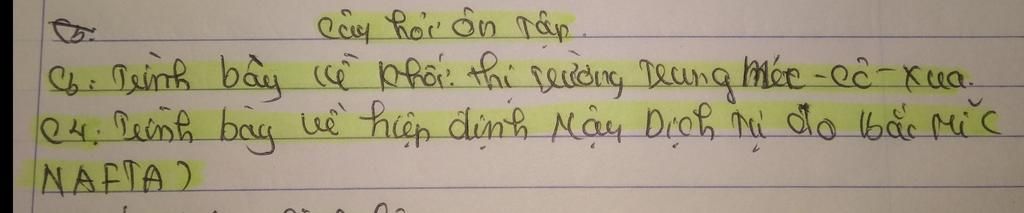 Câu hỏi ôn tập.
C6: Trình bày về khối thị trường chung Méc-cô-xua.
C7: Trình bày về hiệp định Mậu Dịch tự do bắc Mĩ (
NAFTA)